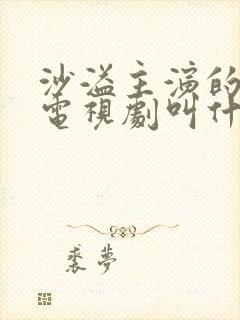 沙溢主演的
電視劇叫什
裘夢